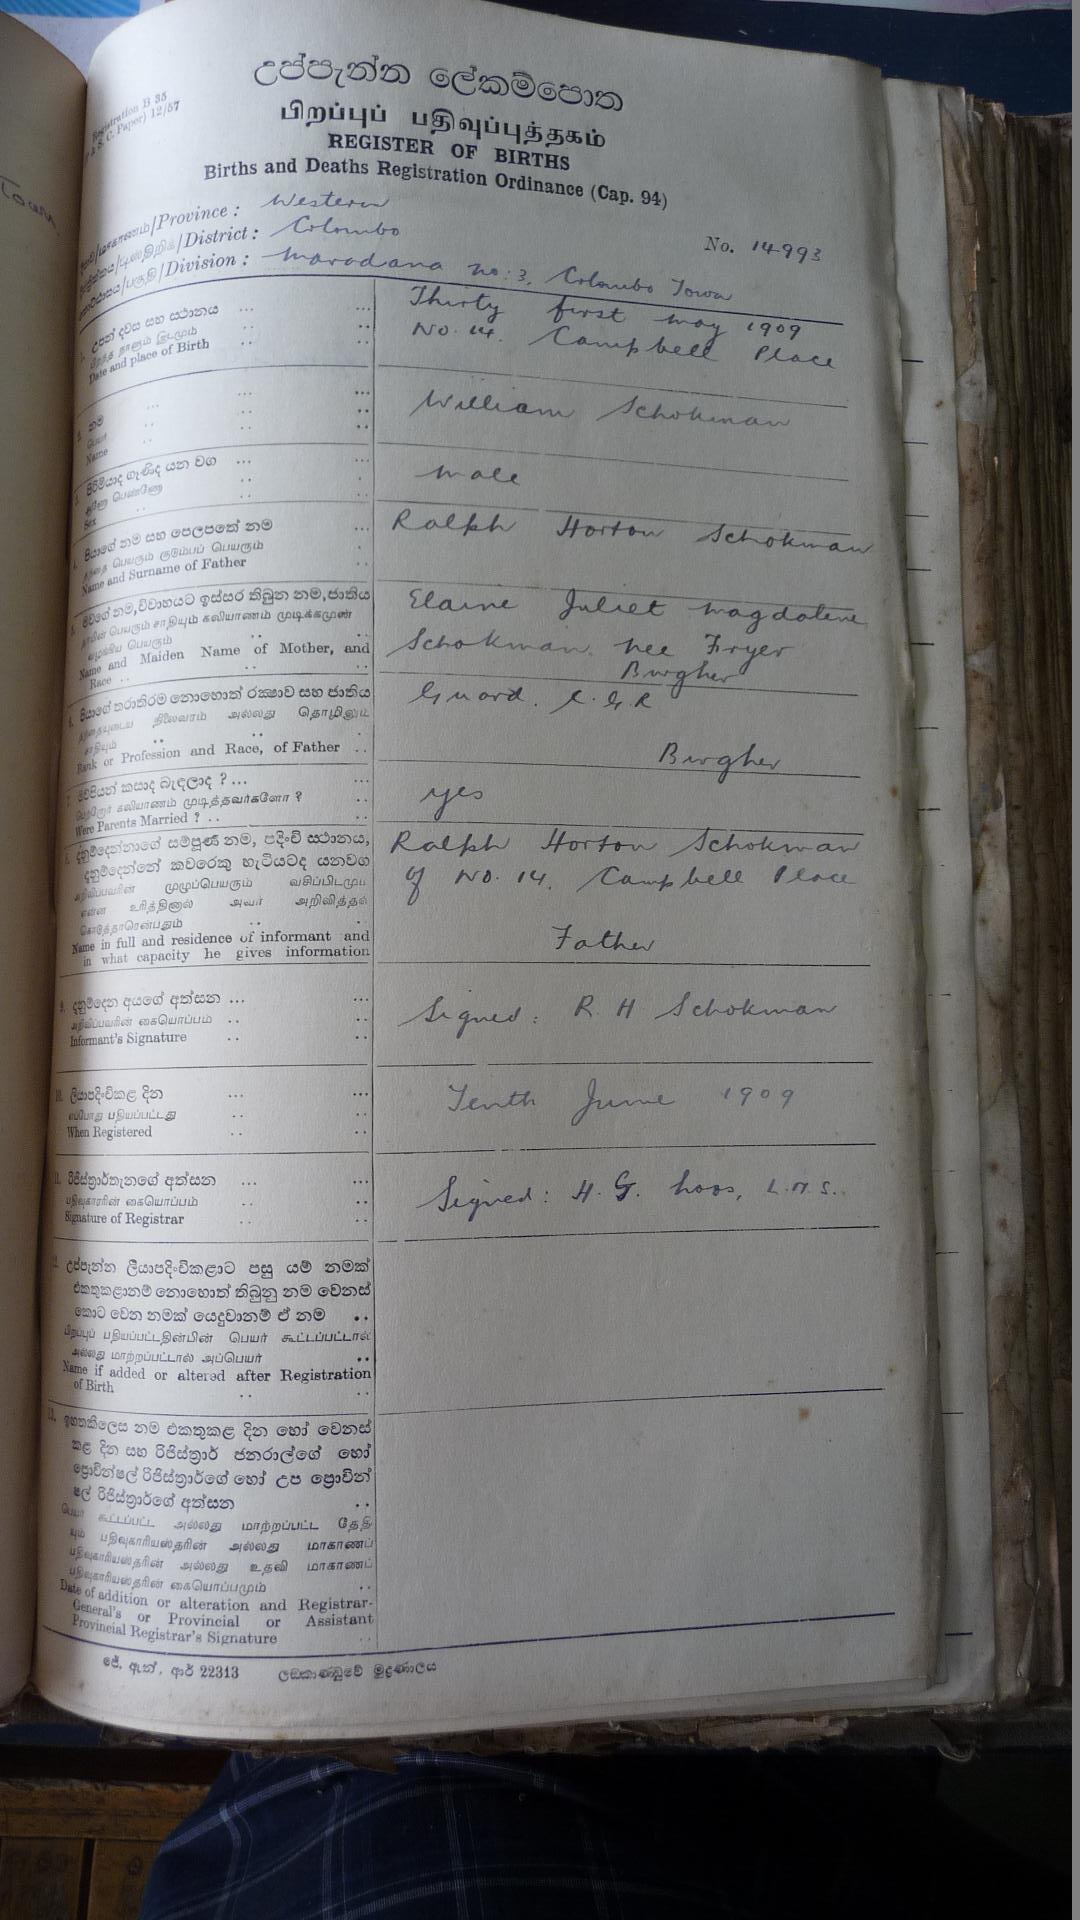 Loam
Registration B 35
& S. C. Paper) 12/57
උප්පැන්න ලේකම්පොත
பிறப்புப் பதிவுப்புத்தகம்
REGISTER OF BIRTHS
Births and Deaths Registration Ordinance (Cap. 94)
/Province : Western
/District : Colombo
No. 14993
/Division : Maradana no: 3, Colombo Town
උපන් දවස සහ ස්ථානය ... ...
பிறந்த நாளும் இடமும்
Date and place of Birth
Thirty first may 1909
No. 14. Campbell Place
2. නම
பெயர்
Name
William Schokman
3. පිරිමියාද ගෑණිද යන වග ... ...
ஆணோ பெண்ணோ
Sex
male
4. පියාගේ නම සහ පෙලපතේ නම ...
தந்தை பெயரும் குடும்பப் பெயரும்
Name and Surname of Father
Ralph Horton Schokman
5. මවගේ නම, විවාහයට ඉස්සර තිබුන නම, ජාතිය
தாயின் பெயரும் சாதியும் கலியாணம் முடிக்கமுன்
வழங்கிய பெயரும்
Name and Maiden Name of Mother, and
Race ..
Elaine Juliet magdalene
Schokman nee Fryer
Burgher
6. පියාගේ තරාතිරම නොහොත් රක්ෂාව සහ ජාතිය
தந்தையுடைய நிலைவரம் அல்லது தொழிலும்
சாதியும்
Rank or Profession and Race, of Father ..
Guard. C. G. R
Burgher
7. මව්පියන් කසාද බැඳලාද ? ... ...
பெற்றோர் கலியாணம் முடித்தவர்களோ ?
Were Parents Married ? ..
yes
8. දැනුම්දෙන්නාගේ සම්පූර්ණ නම, පදිංචි ස්ථානය,
දැනුම්දෙන්නේ කවරෙකු හැටියටද යනවග
அறிவிப்பவரின் முழுப்பெயரும் வசிப்பிடமும்
என்ன உரித்தினால் அவர் அறிவித்தல்
கொடுத்தாரென்பதும்
Name in full and residence of informant and
in what capacity he gives information
Ralph Horton Schokman
of No. 14, Campbell Place
Father
9. දැනුම්දෙන අයගේ අත්සන ... ...
அறிவிப்பவரின் கையொப்பம் ..
Informant's Signature
Signed: R. H Schokman
10. ලියාපදිංචිකළ දින ... ...
எப்போது பதியப்பட்டது ..
When Registered
Tenth June 1909
11. රිජිස්ත්‍රාර්තැනගේ අත්සන ... ...
பதிவுகாரரின் கையொப்பம் ..
Signature of Registrar
Signed: H. G. Loos, L.M.S.
12. උප්පැන්න ලියාපදිංචිකළාට පසු යම් නමක්
එකතුකළානම් නොහොත් තිබුනු නම වෙනස්
කොට වෙන නමක් යෙදුවානම් ඒ නම ..
பிறப்புப் பதியப்பட்டதின்பின் பெயர் கூட்டப்பட்டால்
அல்லது மாற்றப்பட்டால் அப்பெயர் ..
Name if added or altered after Registration
of Birth
13. ඉහතකිලෙස නම එකතුකළ දින හෝ වෙනස්
කළ දින සහ රිජිස්ත්‍රාර් ජනරාල්ගේ හෝ
ප්‍රොවින්ෂල් රිජිස්ත්‍රාර්ගේ හෝ උප ප්‍රොවින්
ෂල් රිජිස්ත්‍රාර්ගේ අත්සන ..
பெயர் கூட்டப்பட்ட அல்லது மாற்றப்பட்ட தேதி
யும் பதிவுகாரியஸ்தரின் அல்லது மாகாணப்
பதிவுகாரியஸ்தரின் அல்லது உதவி மாகாணப்
பதிவுகாரியஸ்தரின் கையொப்பமும் ..
Date of addition or alteration and Registrar-
General's or Provincial or Assistant
Provincial Registrar's Signature
ජේ. ඇන්. ආර් 22313 ලඞ්කාණ්ඩුවේ මුද්‍රණාලය